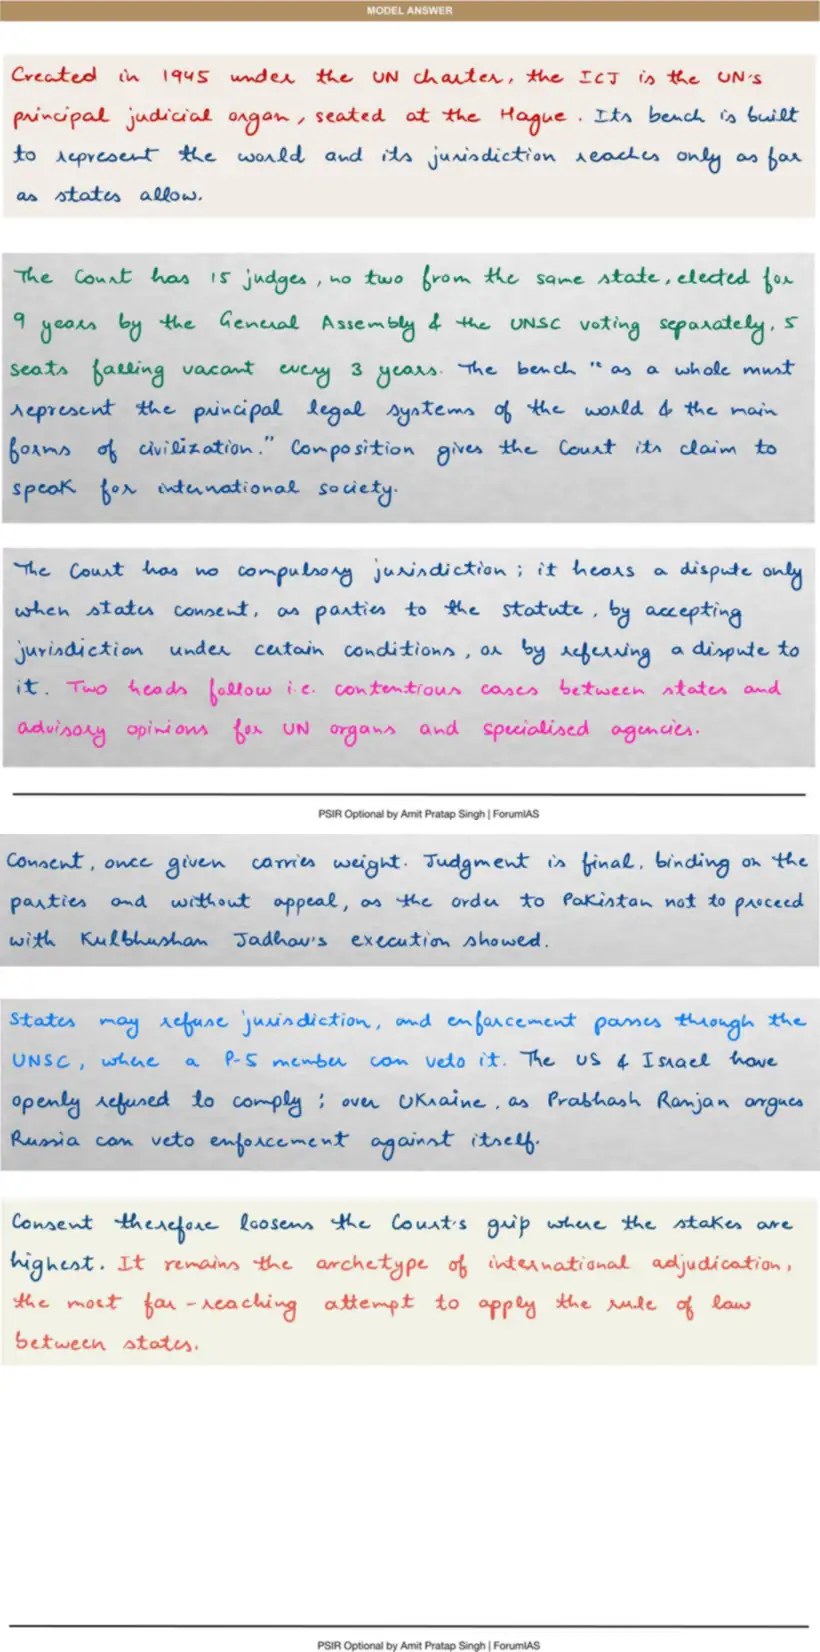 MODEL ANSWER
Created in 1945 under the UN charter, the ICJ is the UN's
principal judicial organ, seated at the Hague. Its bench is built
to represent the world and its jurisdiction reaches only as far
as states allow.
The Court has 15 judges, no two from the same state, elected for
9 years by the General Assembly & the UNSC voting separately, 5
seats falling vacant every 3 years. The bench "as a whole must
represent the principal legal systems of the world & the main
forms of civilization." Composition gives the Court its claim to
speak for international society.
The Court has no compulsory jurisdiction; it hears a dispute only
when states consent, as parties to the statute, by accepting
jurisdiction under certain conditions, or by referring a dispute to
it. Two heads follow i.e. contentious cases between states and
advisory opinions for UN organs and specialised agencies.
PSIR Optional by Amit Pratap Singh | ForumIAS
Consent, once given carries weight. Judgment is final, binding on the
parties and without appeal, as the order to Pakistan not to proceed
with Kulbhushan Jadhav's execution showed.
States may refuse jurisdiction, and enforcement passes through the
UNSC, where a P-5 member can veto it. The US & Israel have
openly refused to comply; over Ukraine, as Prabhash Ranjan argues
Russia can veto enforcement against itself.
Consent therefore loosens the Court's grip where the stakes are
highest. It remains the archetype of international adjudication,
the most far-reaching attempt to apply the rule of law
between states.
PSIR Optional by Amit Pratap Singh | ForumIAS